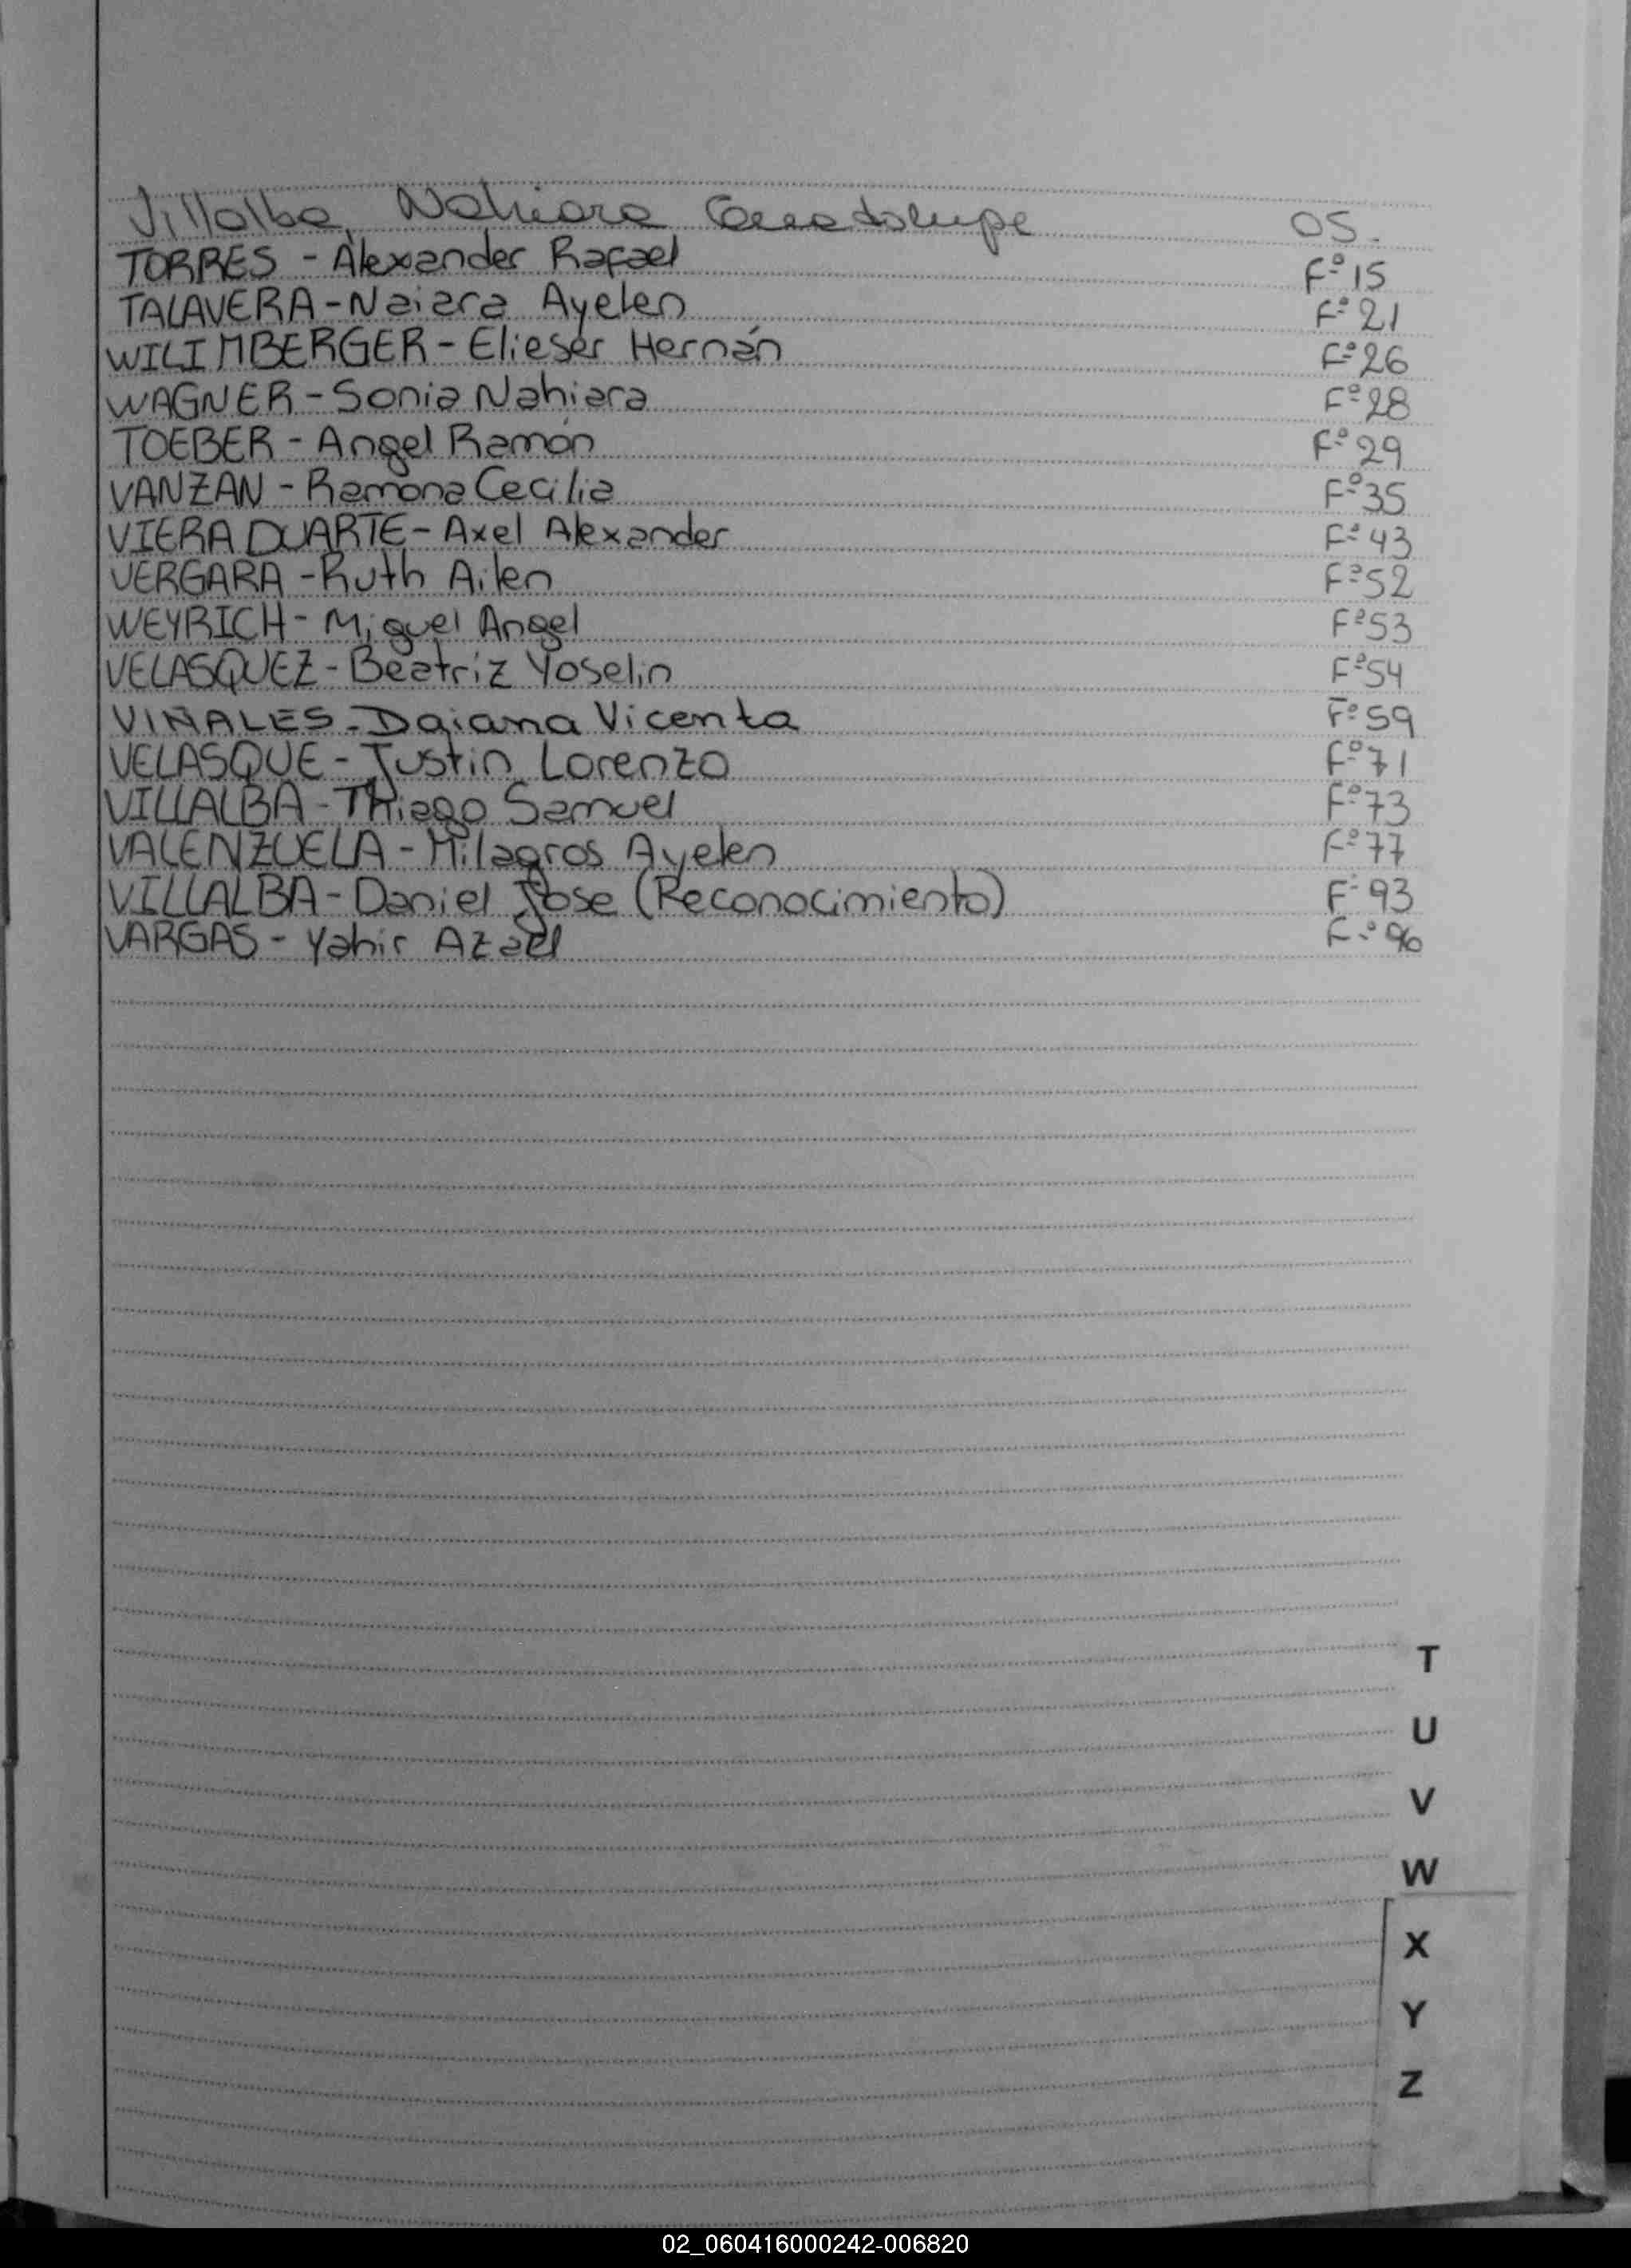 Villalba, Nahiara Guadalupe 05.
TORRES - Alexander Rafael Fº 15
TALAVERA - Naiara Ayelen Fº 21
WILIMBERGER - Elieser Hernán Fº 26
WAGNER - Sonia Nahiara Fº 28
TOEBER - Angel Ramón Fº 29
VANZAN - Ramona Cecilia Fº 35
VIERA DUARTE - Axel Alexander Fº 43
VERGARA - Ruth Ailen Fº 52
WEYRICH - Miguel Angel Fº 53
VELASQUEZ - Beatriz Yoselin Fº 54
VIÑALES - Daiana Vicenta Fº 59
VELASQUE - Justin Lorenzo Fº 71
VILLALBA - Thiago Samuel Fº 73
VALENZUELA - Milagros Ayelen Fº 77
VILLALBA - Daniel Jose (Reconocimiento) Fº 93
VARGAS - Yahir Azael Fº 96
T
U
V
W
X
Y
Z
02_060416000242-006820